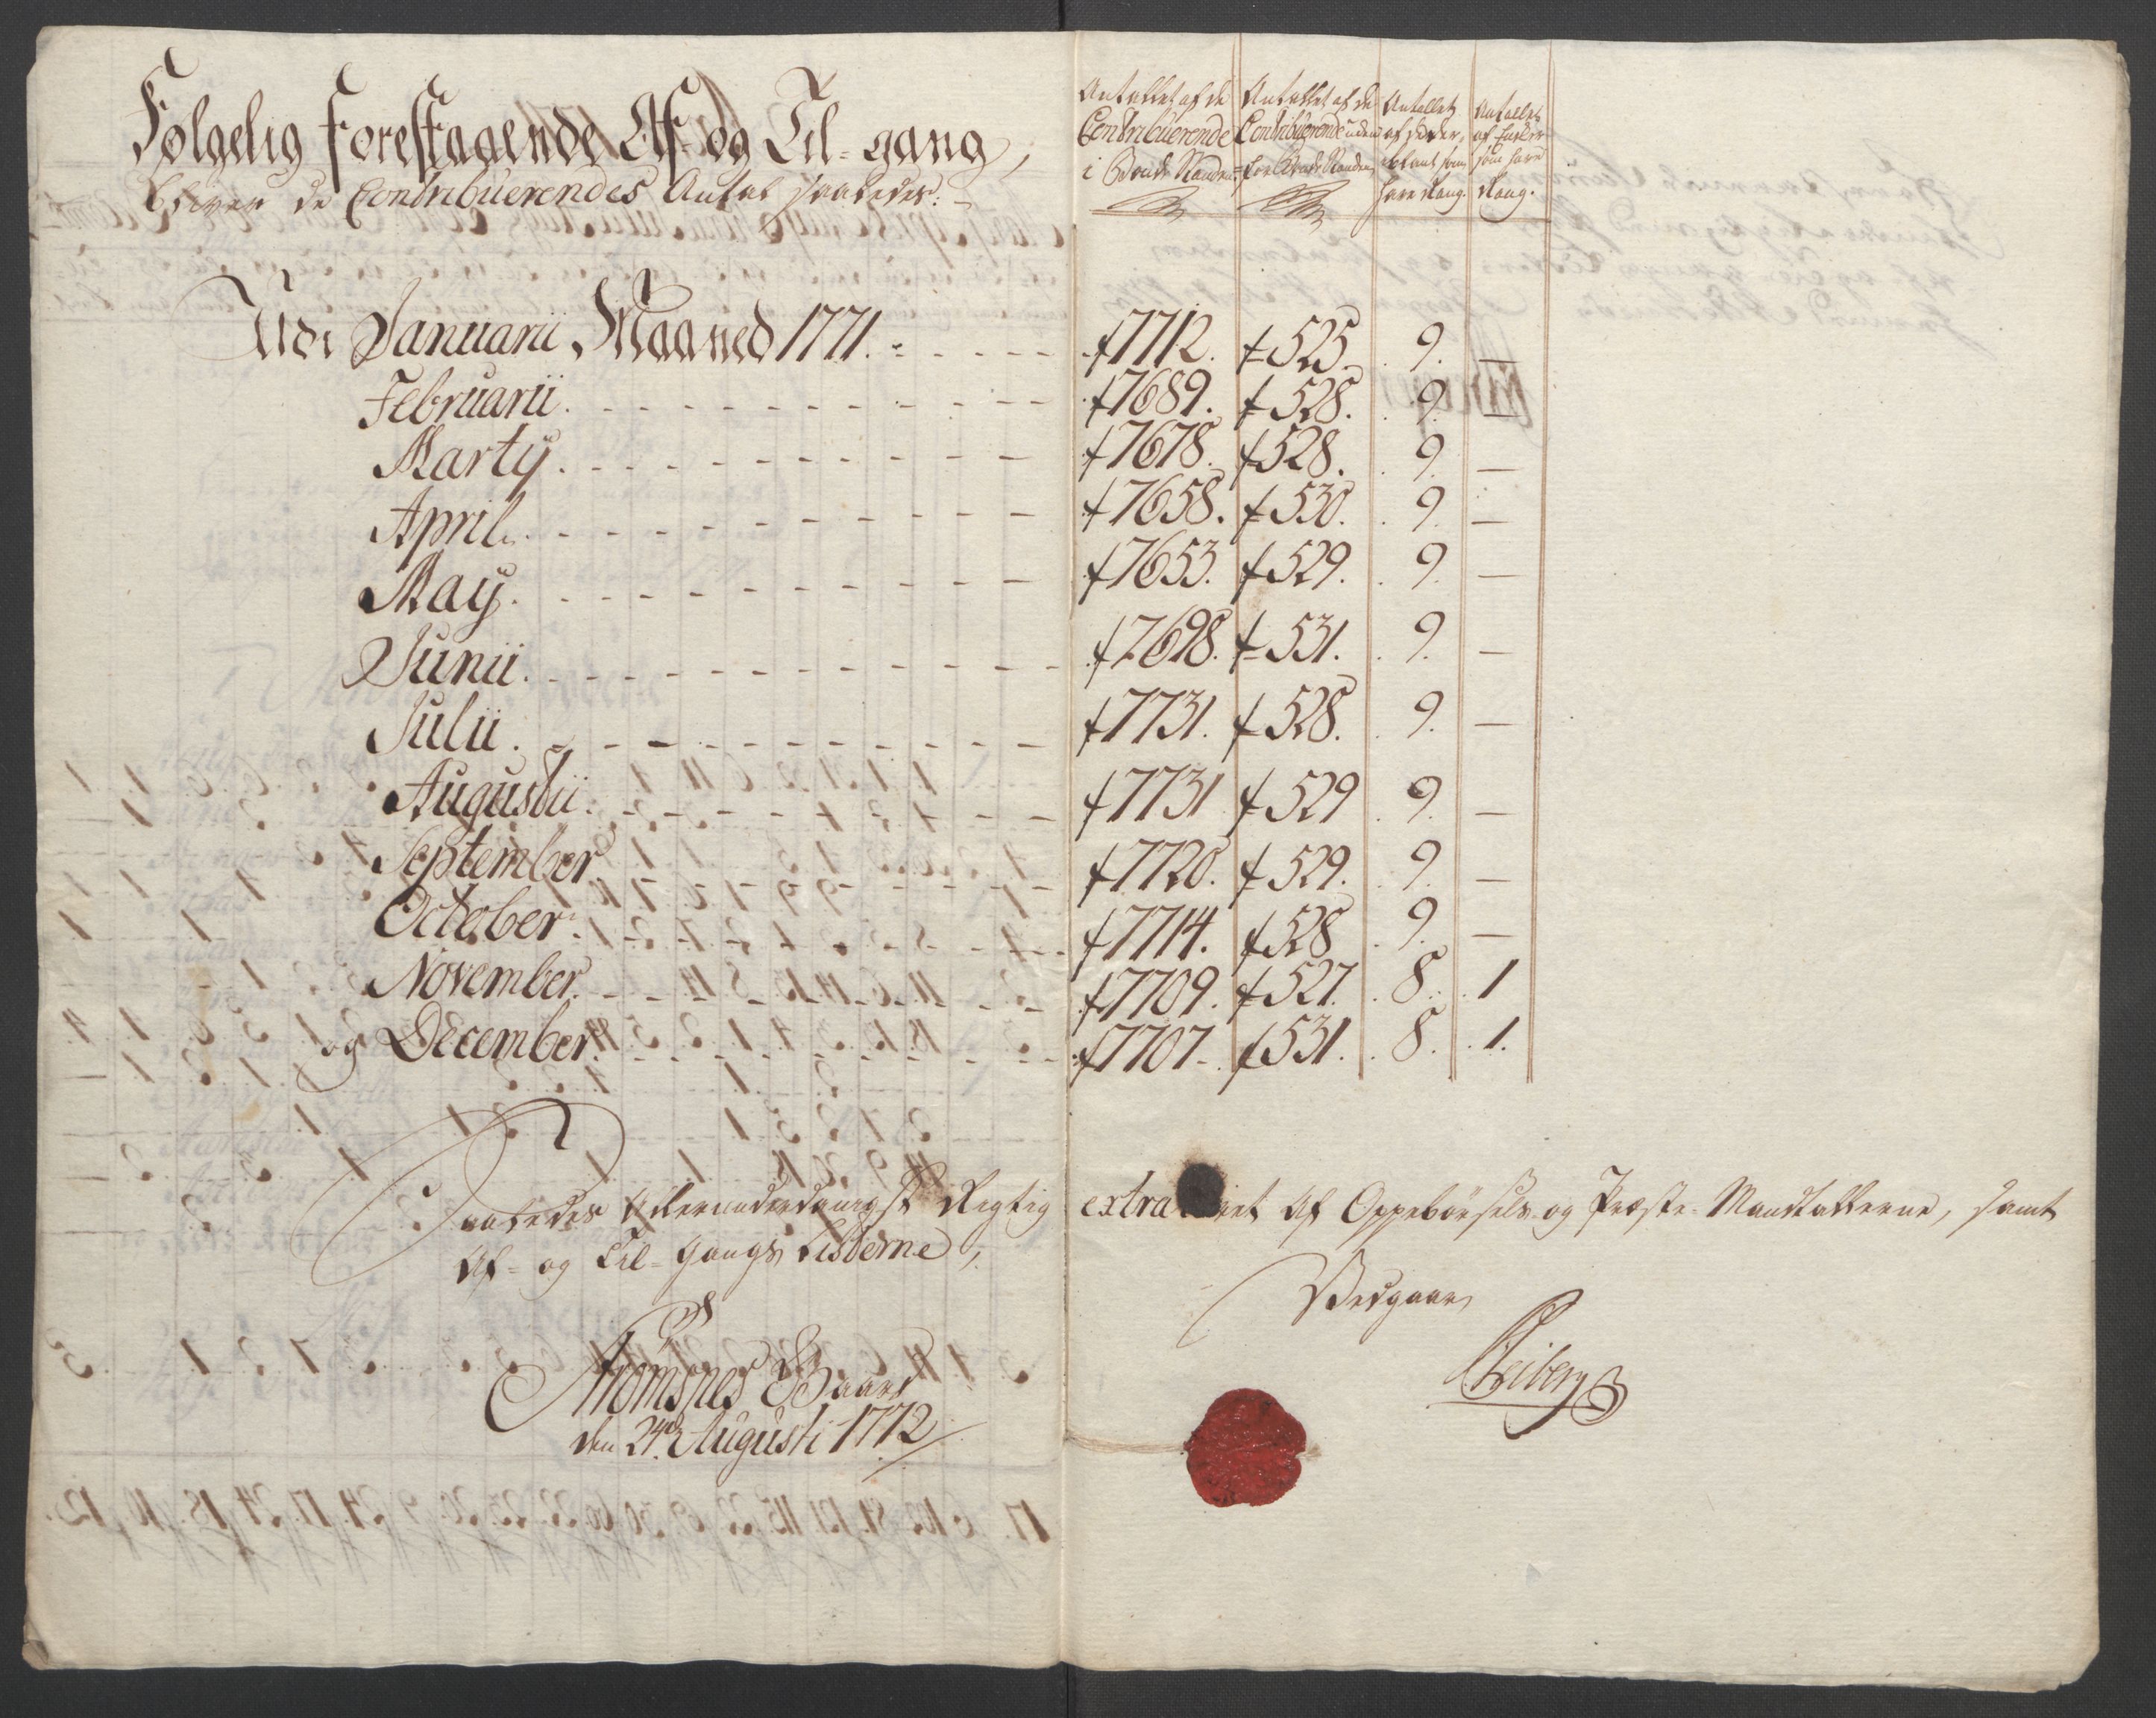 Følgelig forestaaende Af- og Til-gang,
bliver de Contribuerendes Antal saaledes:
Antallet af de Contribuerende i Bonde Standen
Antallet af de Contribuerende uden for Bonde Standen
Antallet af som have Rang.
Antallet af Enker som have Rang.
Udi Januarii Maaned 1771. 7712. 525 9. —
Februarii. 7689. 528. 9. —
Martij. 7678. 528. 9. —
April. 7658. 530. 9. —
Maij. 7653. 529. 9. —
Junii. 7698. 531. 9. —
Julii. 7731. 528. 9. —
Augustii. 7731 529 9. —
September. 7720. 529. 9. —
October. 7714. 528 9. —
November. 7709. 527. 8. 1
og December. 7707. 531. 8. 1.
Saaledes Allerunderdanigst Rigtig extra et Af Oppebørsels og Præste-Mandtallerne, samt
Af- og Til-Gangs Listerne,
Strømsnes Gaard
den 24de Augusti 1772